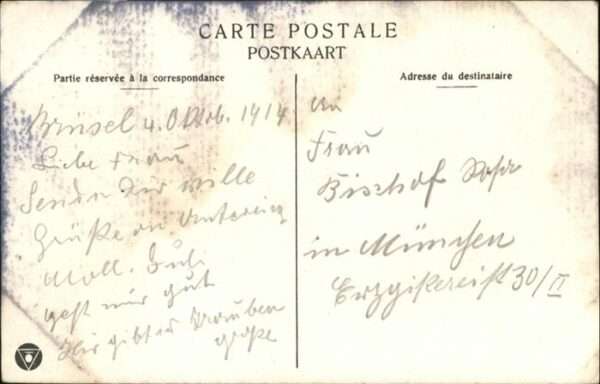 CARTE POSTALE
POSTKAART
Partie réservée à la correspondance
Adresse du destinataire
Brüsel 4. Oktob. 1914
Liebe Frau
Sende Dir wille
Grüße
geht mir gut
Hier gibt es Trauben
große
An
Frau
Bischof
in München
Erzgießereist 30/II